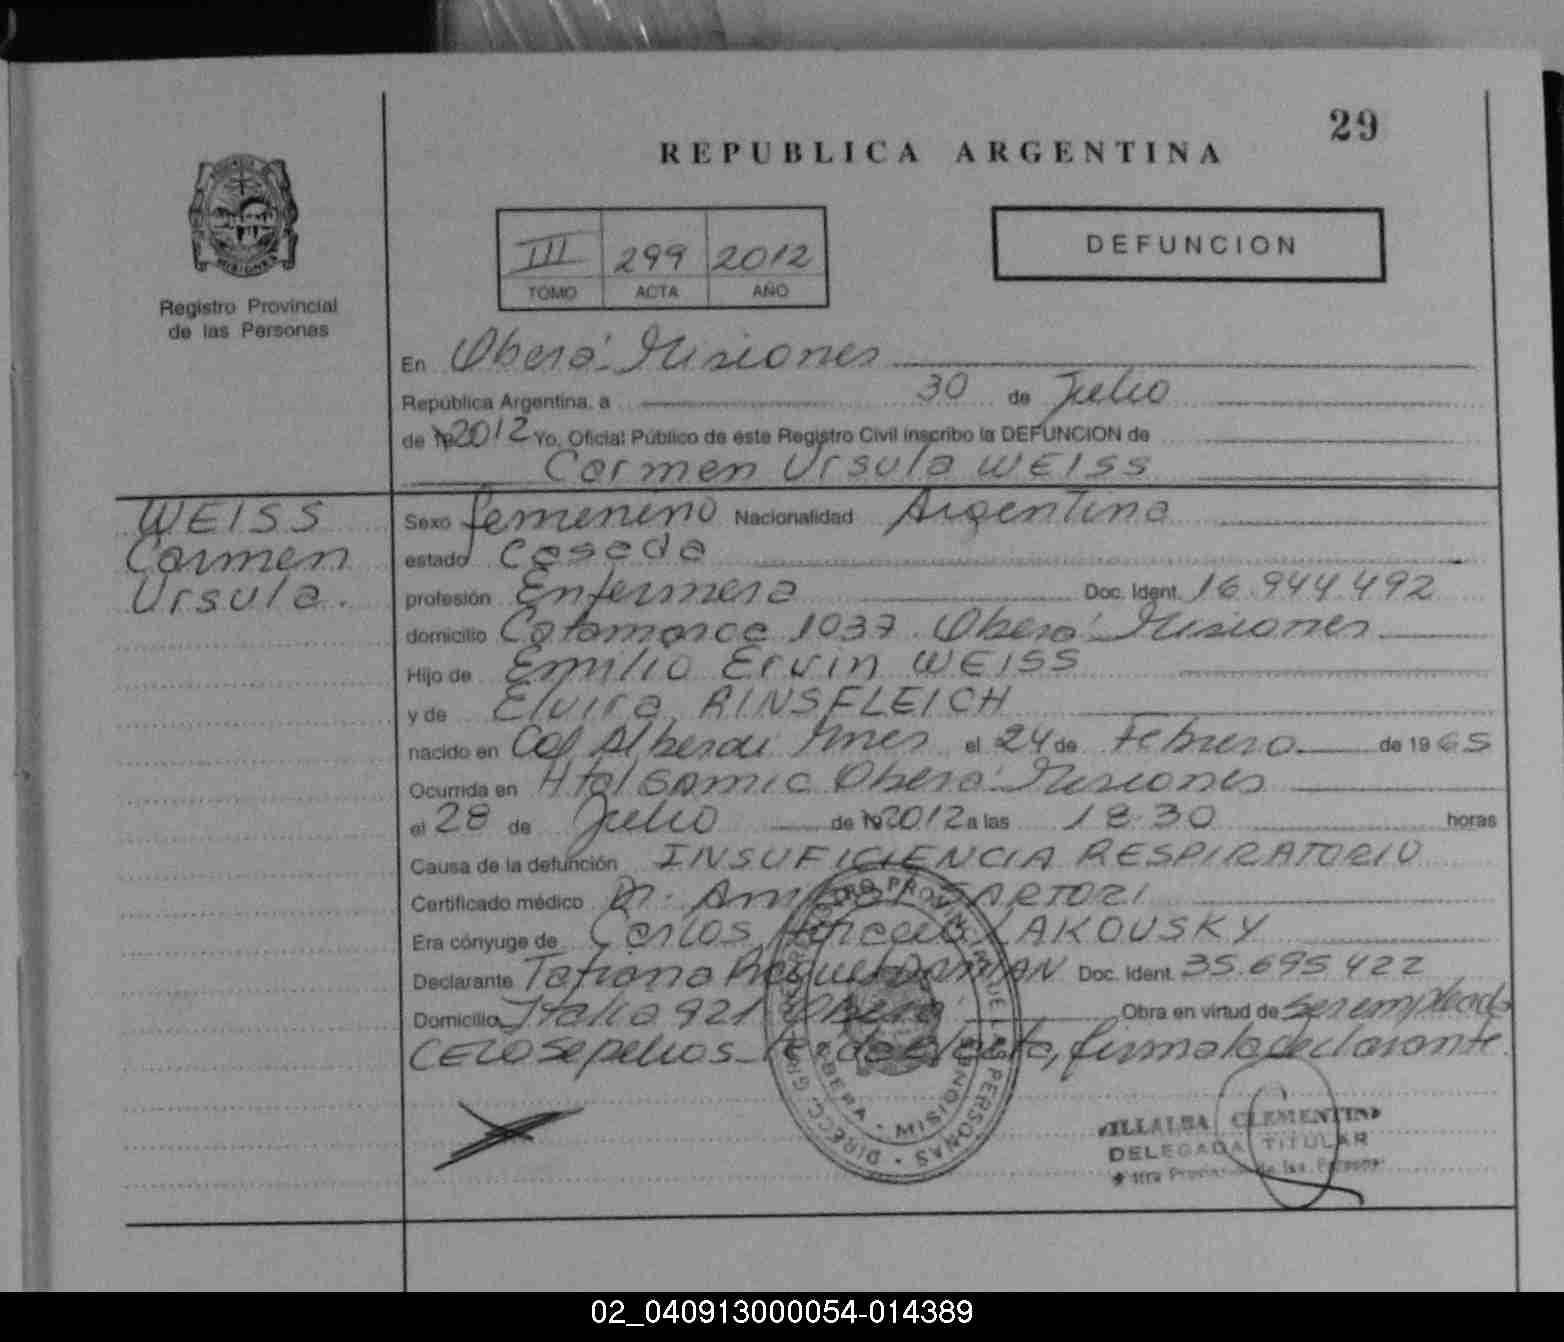 29
REPUBLICA ARGENTINA
MISIONES
Registro Provincial
de las Personas
III 299 2012
TOMO ACTA AÑO
DEFUNCION
En Oberá-Misiones
República Argentina, a 30 de Julio
de 19 2012 Yo, Oficial Público de este Registro Civil inscribo la DEFUNCION de
Carmen Ursula WEISS
WEISS
Carmen
Ursula.
Sexo femenino Nacionalidad Argentina
estado Casada
profesión Enfermera Doc. Ident. 16.944.492
domicilio Catamarca 1037 Oberá-Misiones
Hijo de Emilio Ervin WEISS
y de Elvira RINSFLEICH
nacido en Col Alberdi Mnes el 24 de Febrero de 1965
Ocurrida en Htal Samic Oberá-Misiones
el 28 de Julio de 19 2012 a las 18.30 horas
Causa de la defunción INSUFICIENCIA RESPIRATORIO
Certificado médico Dr. SARTORI
Era cónyuge de Carlos LAKOUSKY
Declarante Tatiana Raquel DAMIAN Doc. Ident. 35.695.422
Domicilio Italia 921 Oberá Obra en virtud de ser empleada
Leída el acta, firma la declarante.
DIRECC. GRAL. REGISTRO PROVINCIAL DE LAS PERSONAS
OBERA - MISIONES
VILLALBA CLEMENTINA
DELEGADA TITULAR
de las Personas
02_040913000054-014389